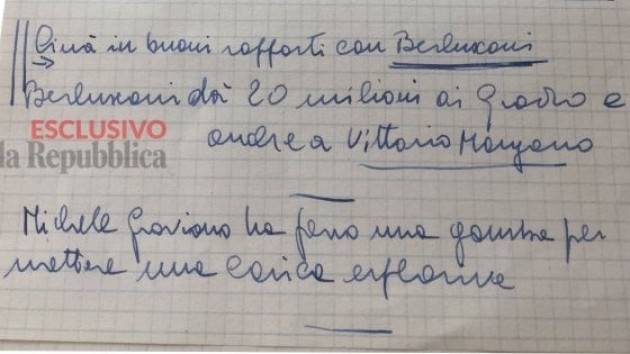 Cinà in buoni rapporti con Berlusconi
Berlusconi dà 20 milioni ai Grado e
ESCLUSIVO
anche a Vittorio Mangano
la Repubblica
Michele Graviano ha perso una gamba per
mettere una carica esplosiva